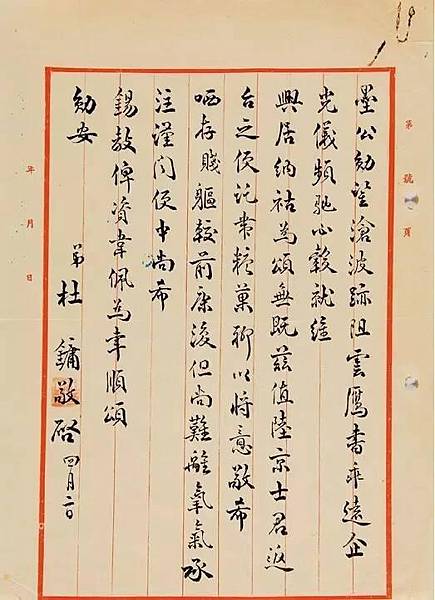 墨公勛望滄波跡阻雲鴈書乖遠企
光儀頻馳心轂就維
興居納祜為頌無既茲值陸京士君返
台之便託帶糉菓聊以將意敬希
哂存賤軀較前康復但尚難離氧氣承
注謹聞便中尚希
錫教俾資韋佩為幸順頌
勛安
弟杜鏞敬啓四月二日
第 號 頁
年 月 日